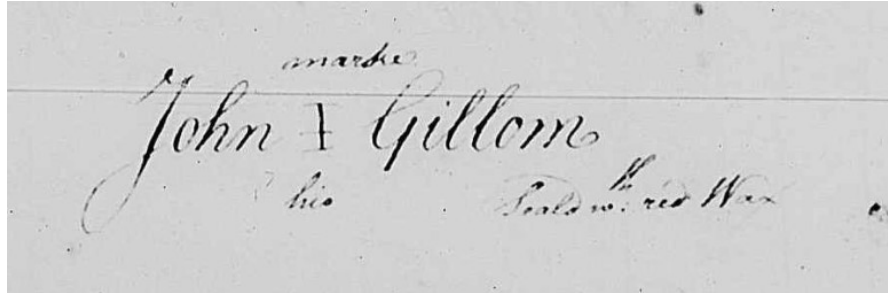 marke
John I Gillom
his Seald wth red Wax